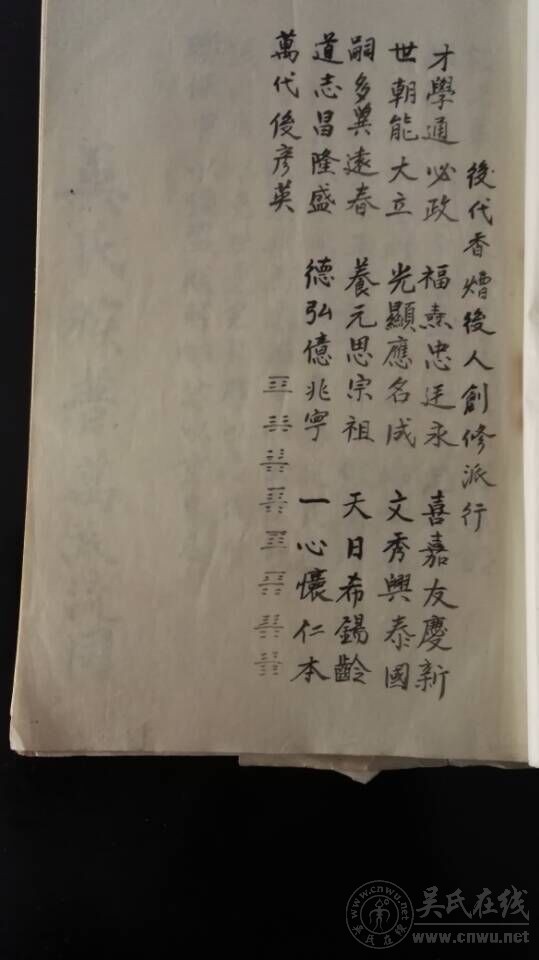 後代香燈後人創修派行
才學通必政 福熹忠廷永 喜嘉友慶新
世朝能大立 光顯應名成 文秀興泰國
嗣多冀遠春 養元思宗祖 天日希錫齡
道志昌隆盛 德弘億兆寧 一心懷仁本
萬代後彥英
吳氏在线
www.cnwu.net